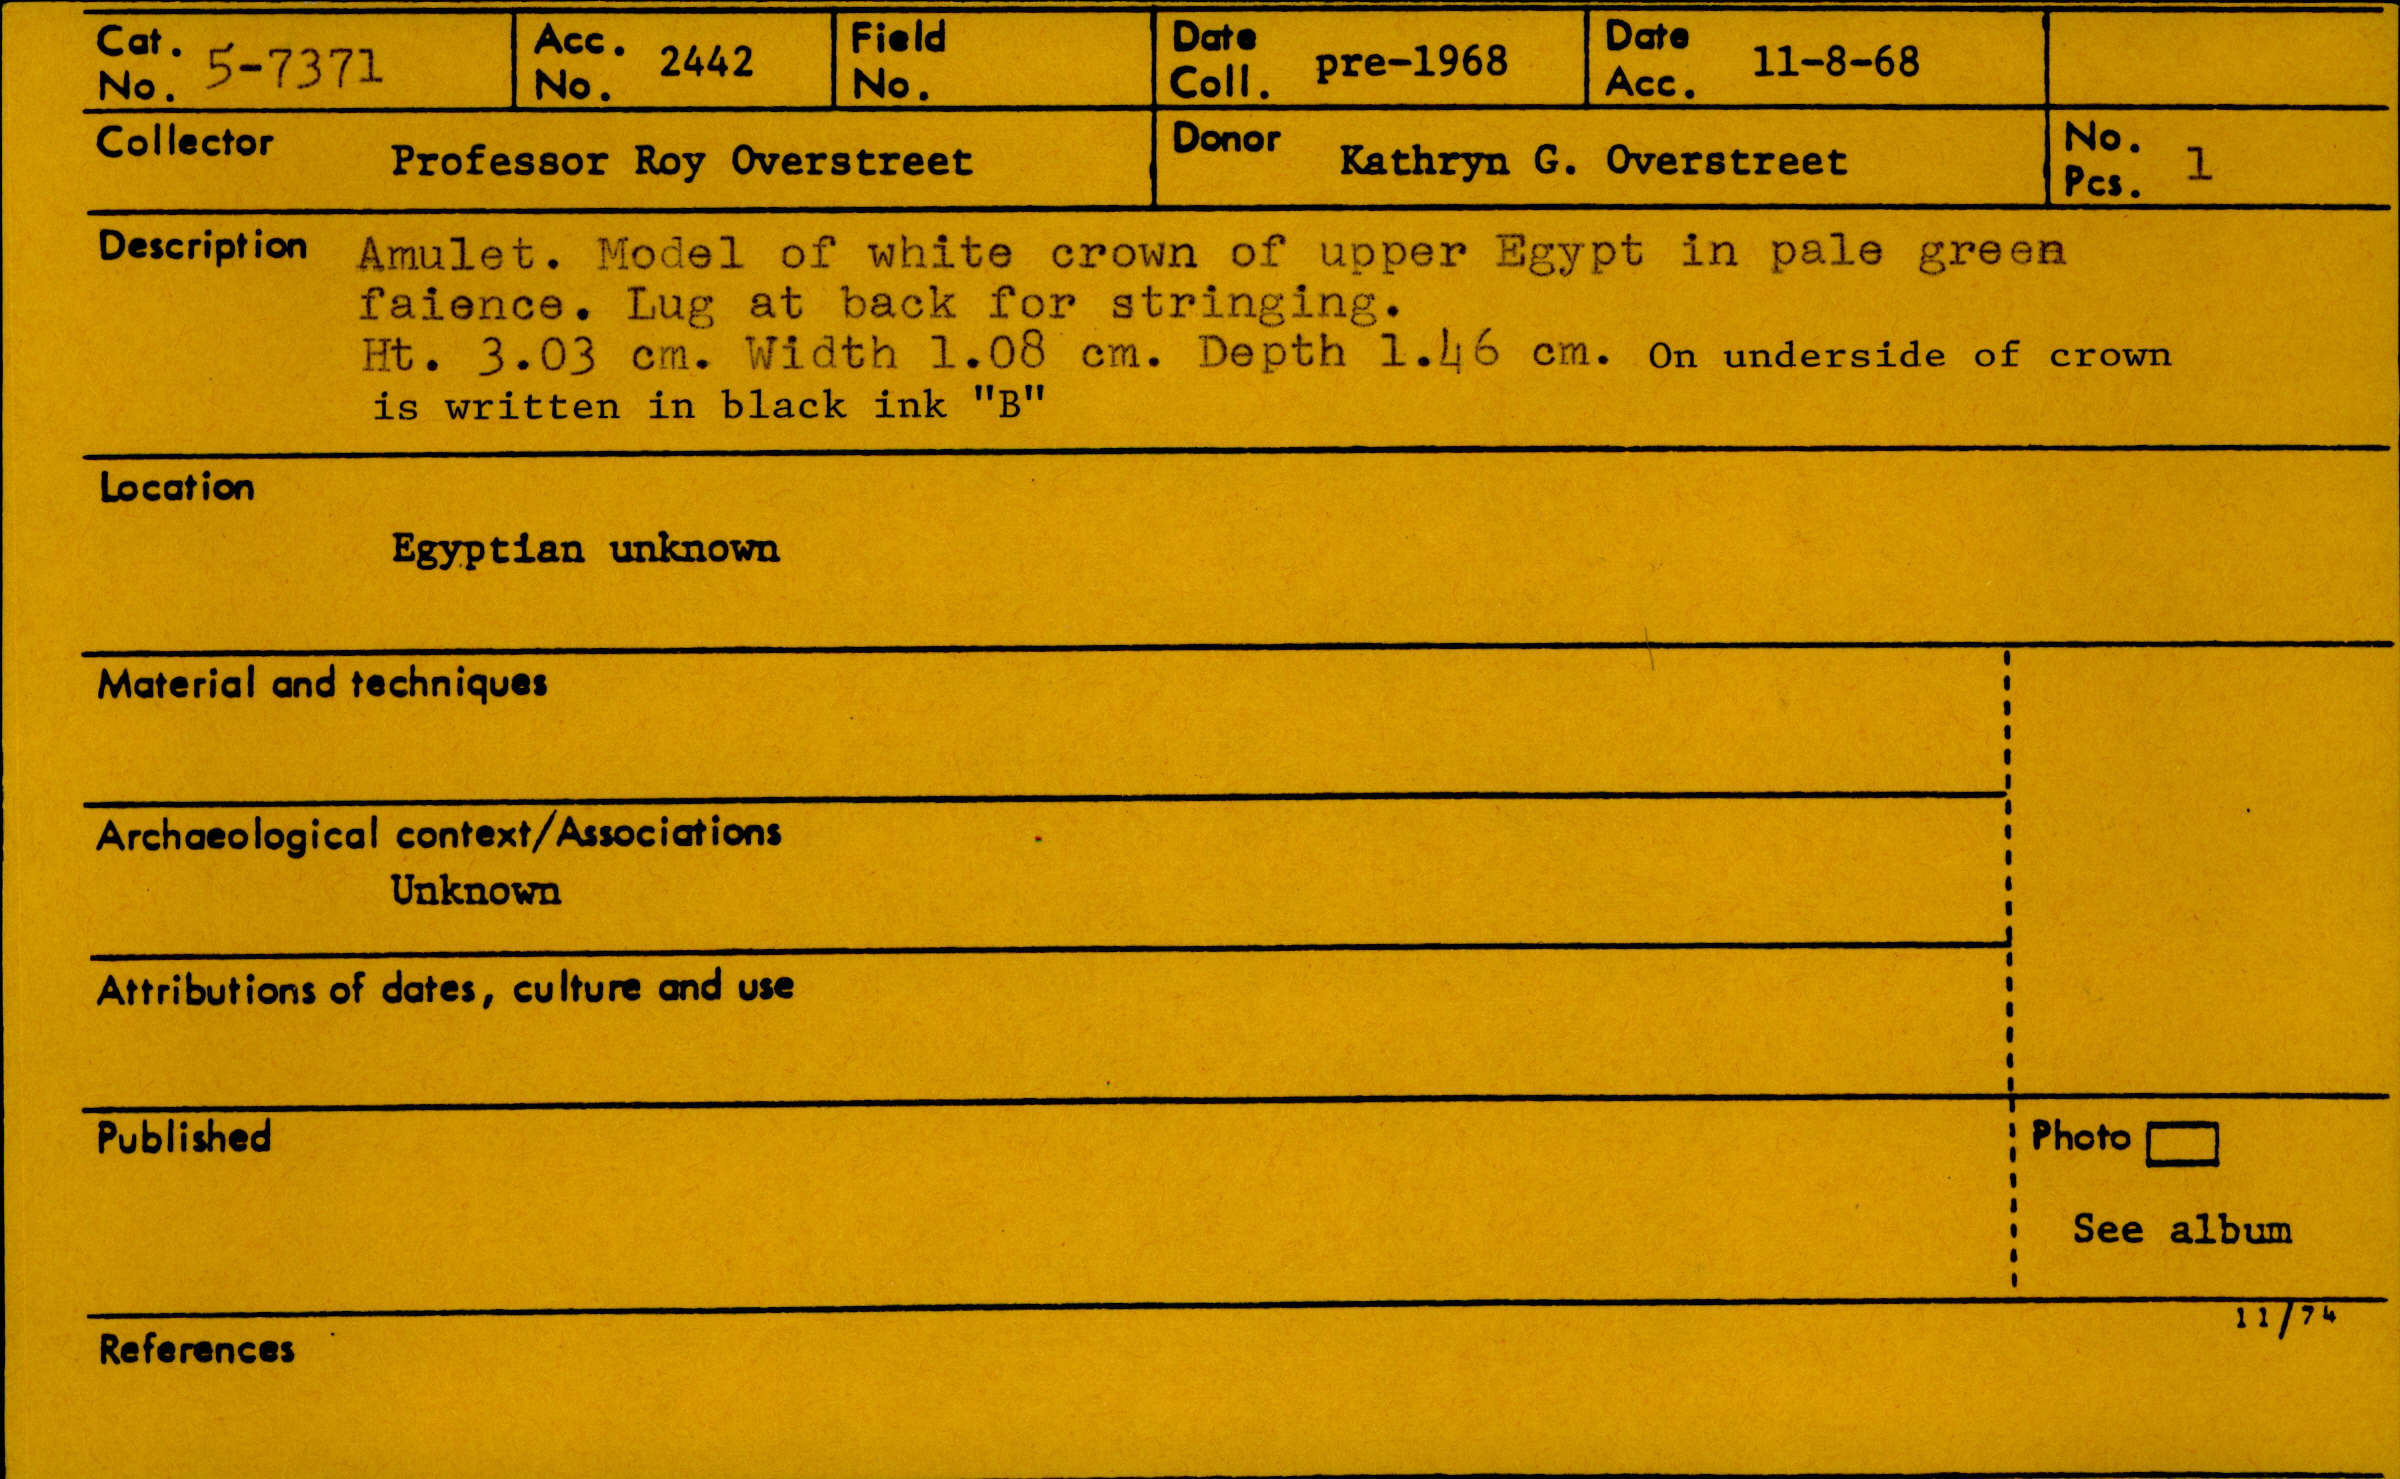 Cat. No. 5-7371 Acc. No. 2442 Field No. Date Coll. pre-1968 Date Acc. 11-8-68
Collector Professor Roy Overstreet Donor Kathryn G. Overstreet No. Pcs. 1
Description Amulet. Model of white crown of upper Egypt in pale green
faience. Lug at back for stringing.
Ht. 3.03 cm. Width 1.08 cm. Depth 1.46 cm. On underside of crown
is written in black ink "B"
Location
Egyptian unknown
Material and techniques
Archaeological context/Associations
Unknown
Attributions of dates, culture and use
Published
Photo
See album
11/74
References